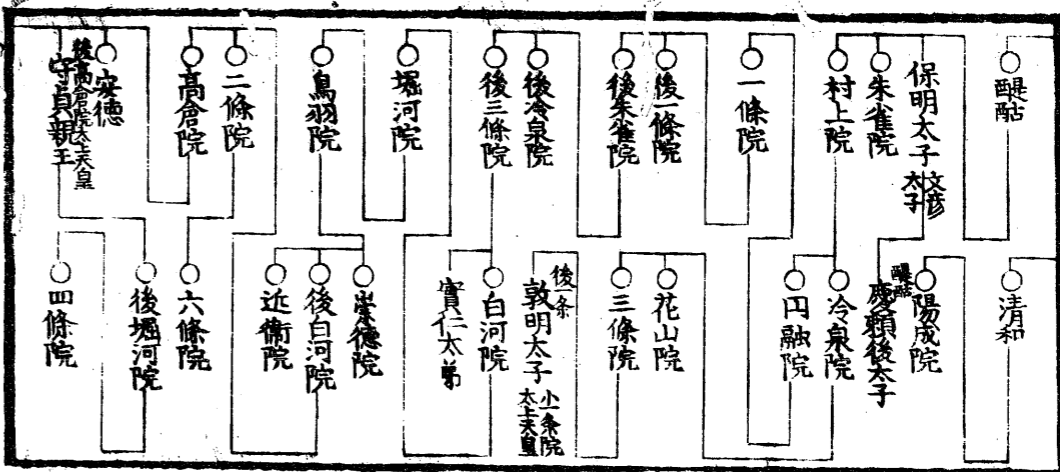 醍醐
保明太子 文彦太子
朱雀院
村上院
一條院
後一條院
後朱雀院
後冷泉院
後三條院
堀河院
鳥羽院
二條院
高倉院
安德
後高倉院太上天皇
守貞親王
清和
陽成院
醍醐
慶頼後太子
冷泉院
円融院
花山院
三條院
後一条
敦明太子 小一条院太上天皇
白河院
實仁太弟
崇德院
後白河院
近衞院
六條院
後堀河院
四條院